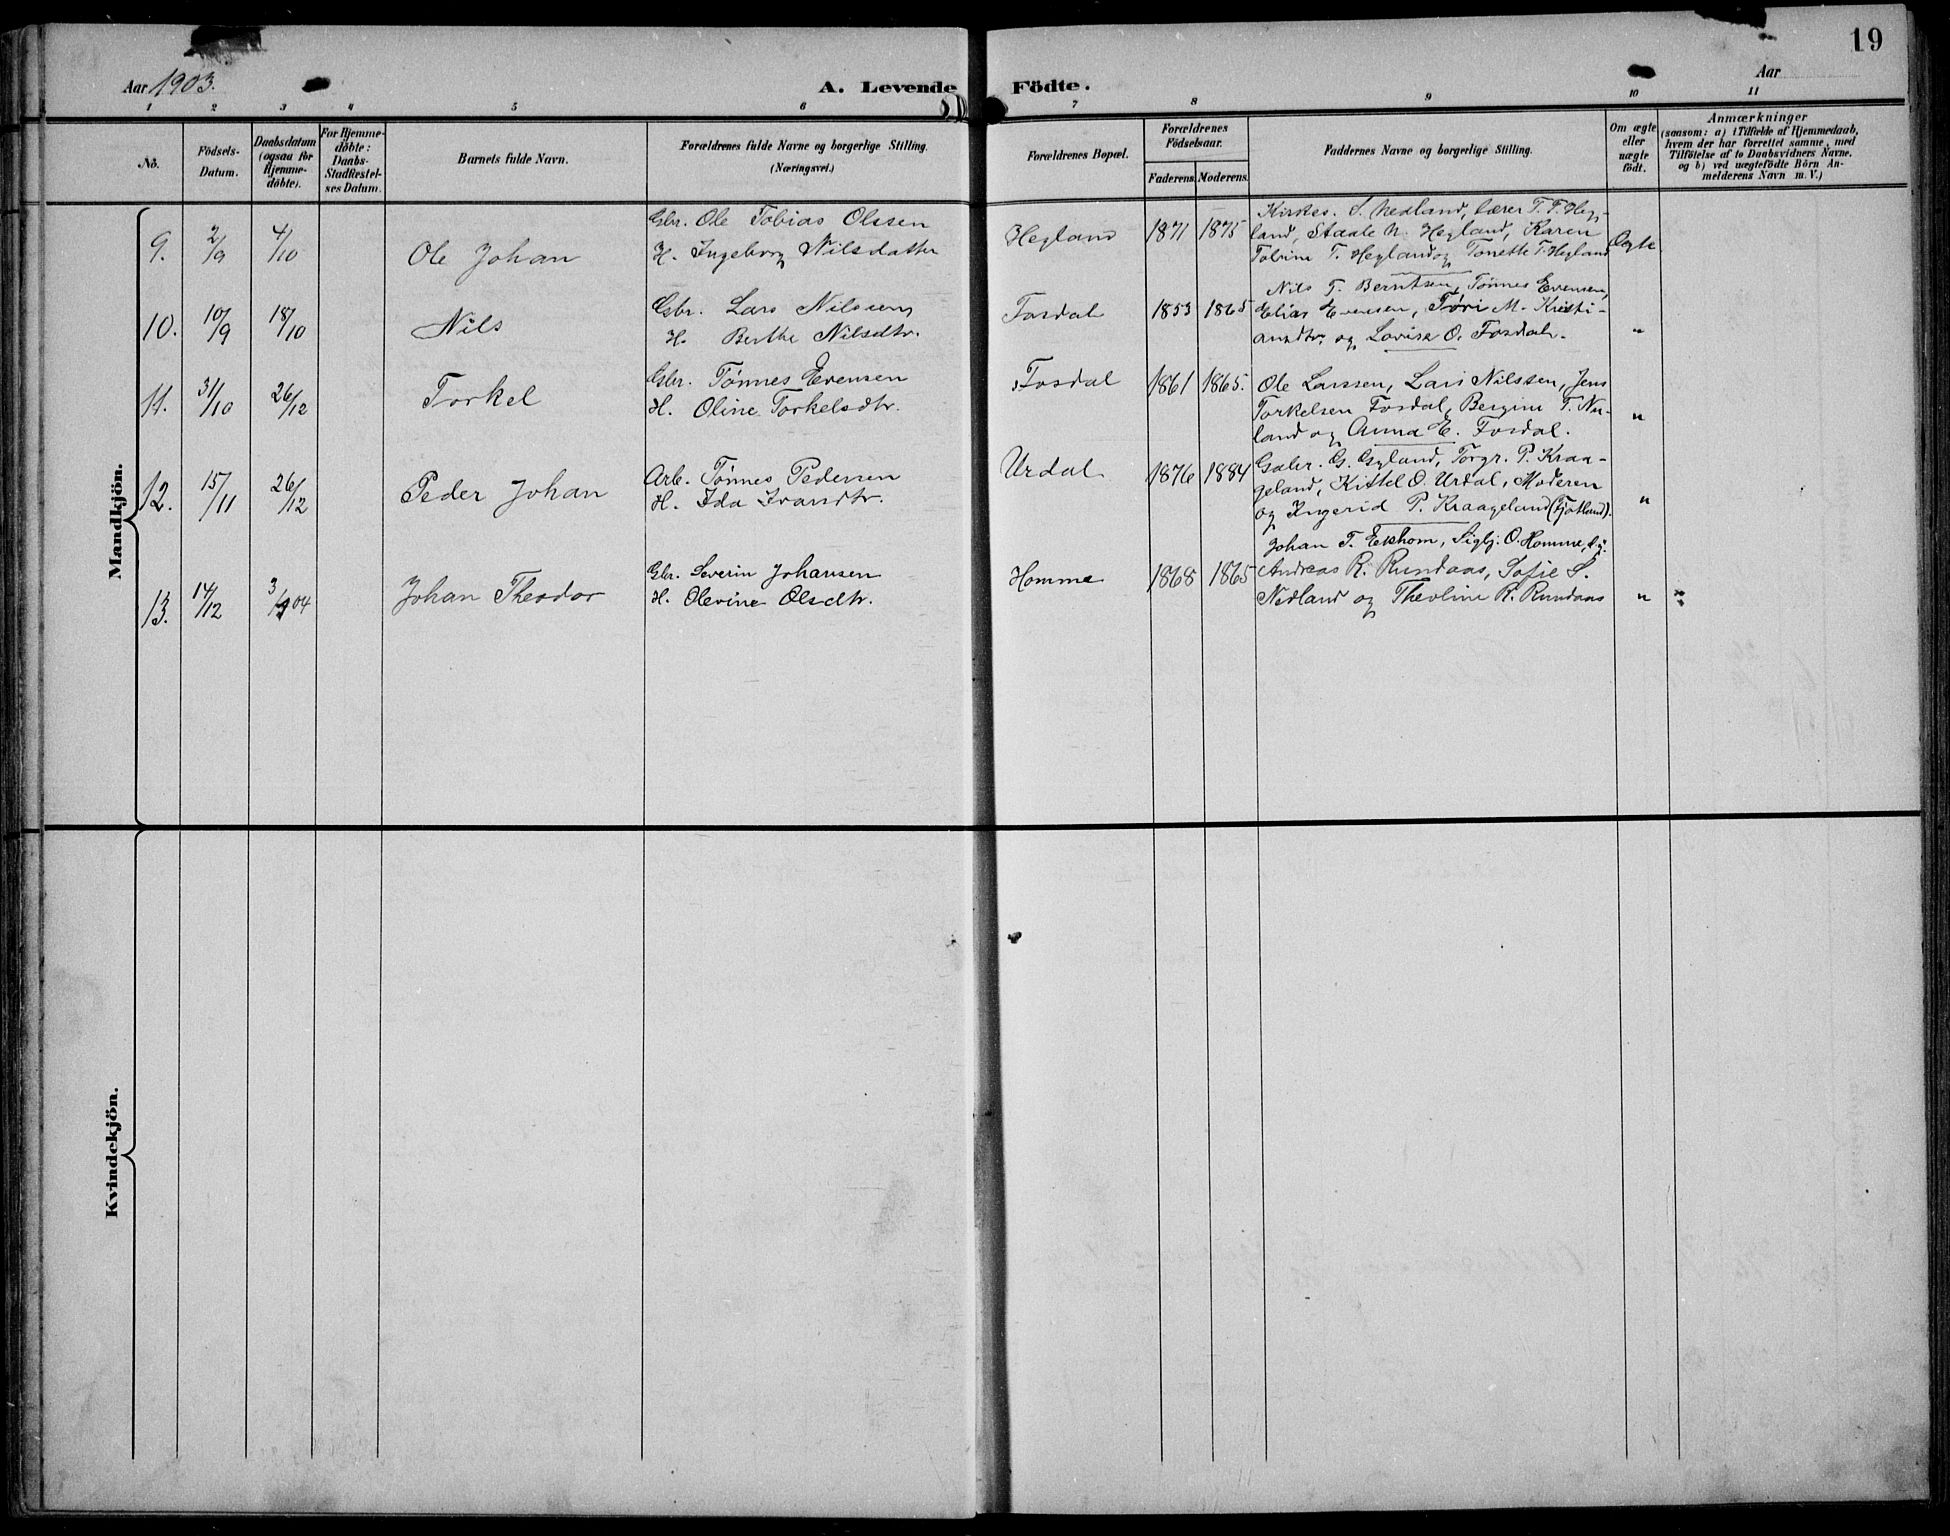 19
Aar 1903.
A. Levende Födte.
Aar
1 2 3 4 5 6 7 8 9 10 11
No.
Födsels-
Datum.
Daabsdatum
(ogsaa for
Hjemme-
döbte).
For Hjemme-
döbte:
Daabs-
Stadfæstel-
ses Datum.
Barnets fulde Navn.
Forældrenes fulde Navne og borgerlige Stilling.
(Næringsvei.)
Forældrenes Bopæl.
Forældrenes
Födselsaar.
Faderens. Moderens.
Faddernes Navne og borgerlige Stilling.
Om ægte
eller
uægte
födt.
Anmærkninger
(saasom: a) i Tilfælde af Hjemmedaab,
hvem der har forrettet samme, med
Tilföielse af to Daabsvidners Navne,
og b) ved uægtefödte Börn An-
melderens Navn m. V.)
Mandkjön.
9. 2/9 4/10 Ole Johan
Gbr. Ole Tobias Olssen
H. Ingeborg Nilsdatter
Hegland 1871 1875
Kirkes. S. Nedland, Lærer T. T. Heg-
land, Staale N. Hegland, Karen
Tobine T. Hegland og Tonette T. Hegland
Ægte
10. 10/9 18/10 Nils
Gbr. Lars Nilssen
H. Berthe Nilsdtr.
Fosdal 1853 1865
Nils T. Berntsen, Tönnes Evensen,
Elias Evensen, Töri M. Kristi-
ansdtr. og Lovise O. Fosdal.
"
11. 31/10 26/12 Torkel
Gbr. Tönnes Evensen
H. Oline Torkelsdtr.
Fosdal 1861 1865.
Ole Larssen, Lars Nilssen, Jens
Torkelsen Fosdal, Bergine T. Nu-
land og Anna E. Fosdal.
"
12. 15/11 26/12 Peder Johan
Arb. Tönnes Pedersen
H. Ida Ivarsdtr.
Urdal 1876 1884
Gabr. G. Gyland, Torgr. P. Kraa-
geland, Kittel O. Urdal, Moderen
og Ingerid P. Kraageland (Fjotland).
"
13. 14/12 3/1 04 Johan Theodor
Gbr. Severin Johansen
H. Olevine Olsdtr.
Homme 1868 1865
Johan T. Eshom, Sigbj. O. Homme,
Andreas R. Rundaas, Sofie S.
Nedland og Theoline R. Rundaas
"
Kvindekjön.